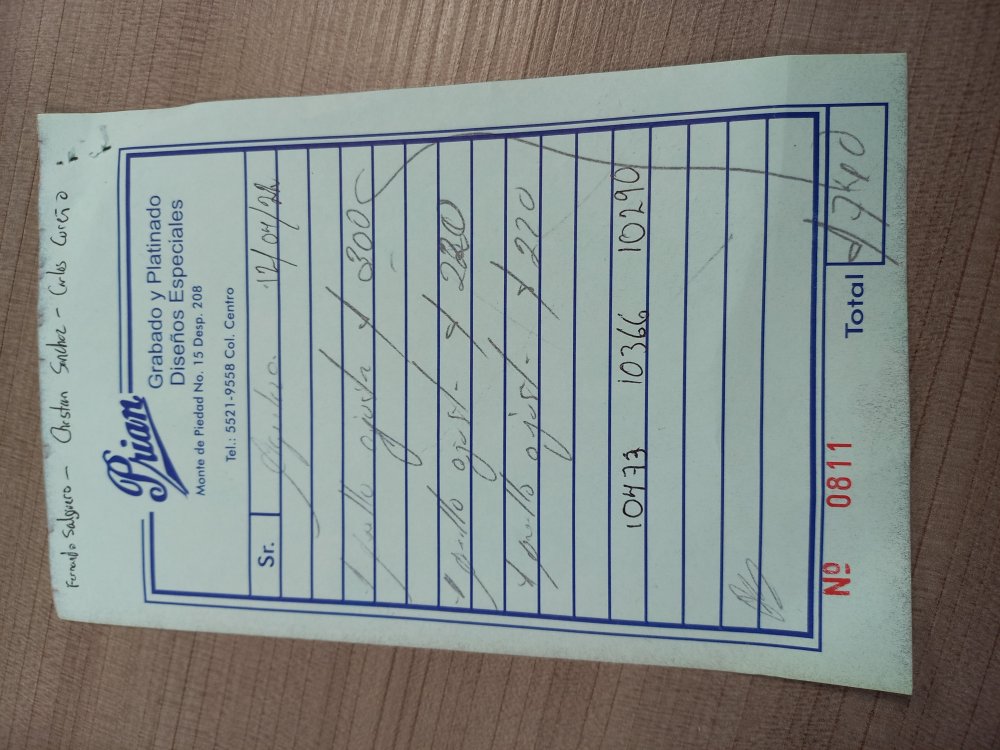 Fernando Salguero - Christian Sánchez - Carlos Cureño
Prian
Grabado y Platinado
Diseños Especiales
Monte de Piedad No. 15 Desp. 208
Tel.: 5521-9558 Col. Centro
Sr. 12/04/22
1 anillo ajustar $ 300
1 anillo ajust- $ 220
1 anillo ajust- $ 220
10473 10366 10290
Nº 0811
Total